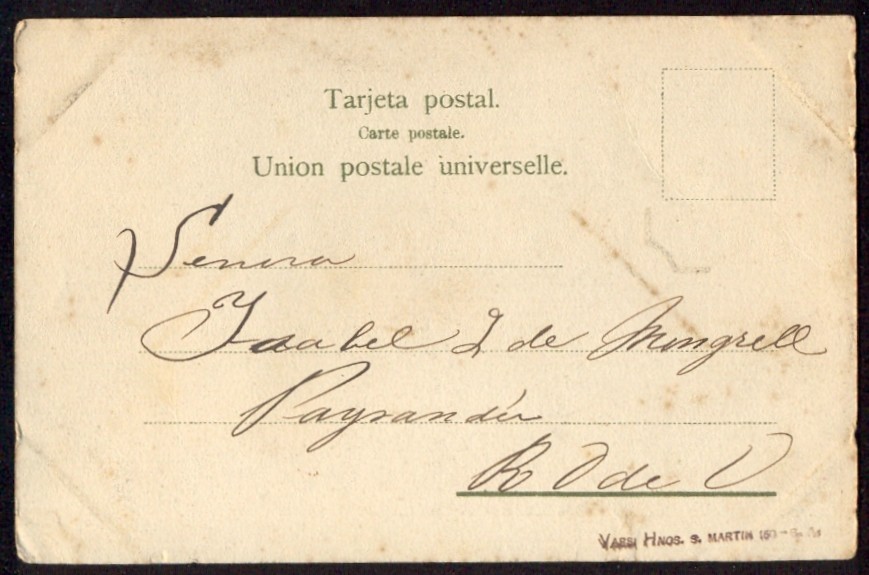 Tarjeta postal.
Carte postale.
Union postale universelle.
Senora
Isabel L de Mongrell
Paysandú
R O de U
VARSI HNOS. S. MARTIN